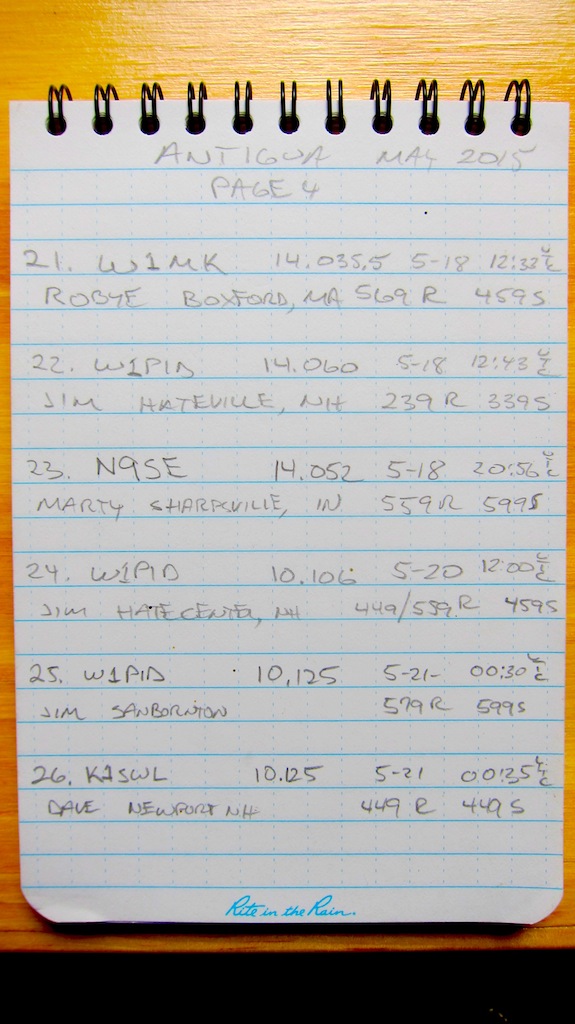 ANTIGUA MAY 2015
PAGE 4
21. W1MK 14.035.5 5-18 12:33 UTC
ROBYE BOXFORD, MA 569 R 459 S
22. W1PID 14.060 5-18 12:43 UTC
JIM HATEVILLE, NH 239 R 339 S
23. N9SE 14.052 5-18 20:56 UTC
MARTY SHARPSVILLE, IN 559 R 599 S
24. W1PID 10.106 5-20 12:00 UTC
JIM HATECENTER, NH 449/559 R 459 S
25. W1PID 10,125 5-21- 00:30 UTC
JIM SANBORNTON 579 R 599 S
26. KA5WL 10.125 5-21 00:35 UTC
DAVE NEWPORT NH 449 R 449 S
Rite in the Rain.